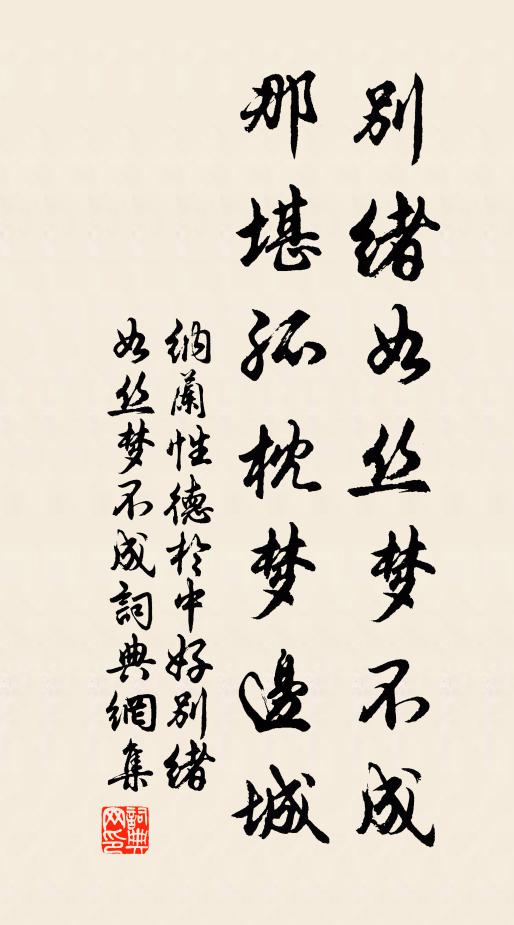 别绪如丝梦不成
那堪孤枕梦邊城
纳蘭性德於中好别绪
如丝梦不成詞典網集
詞典
网印